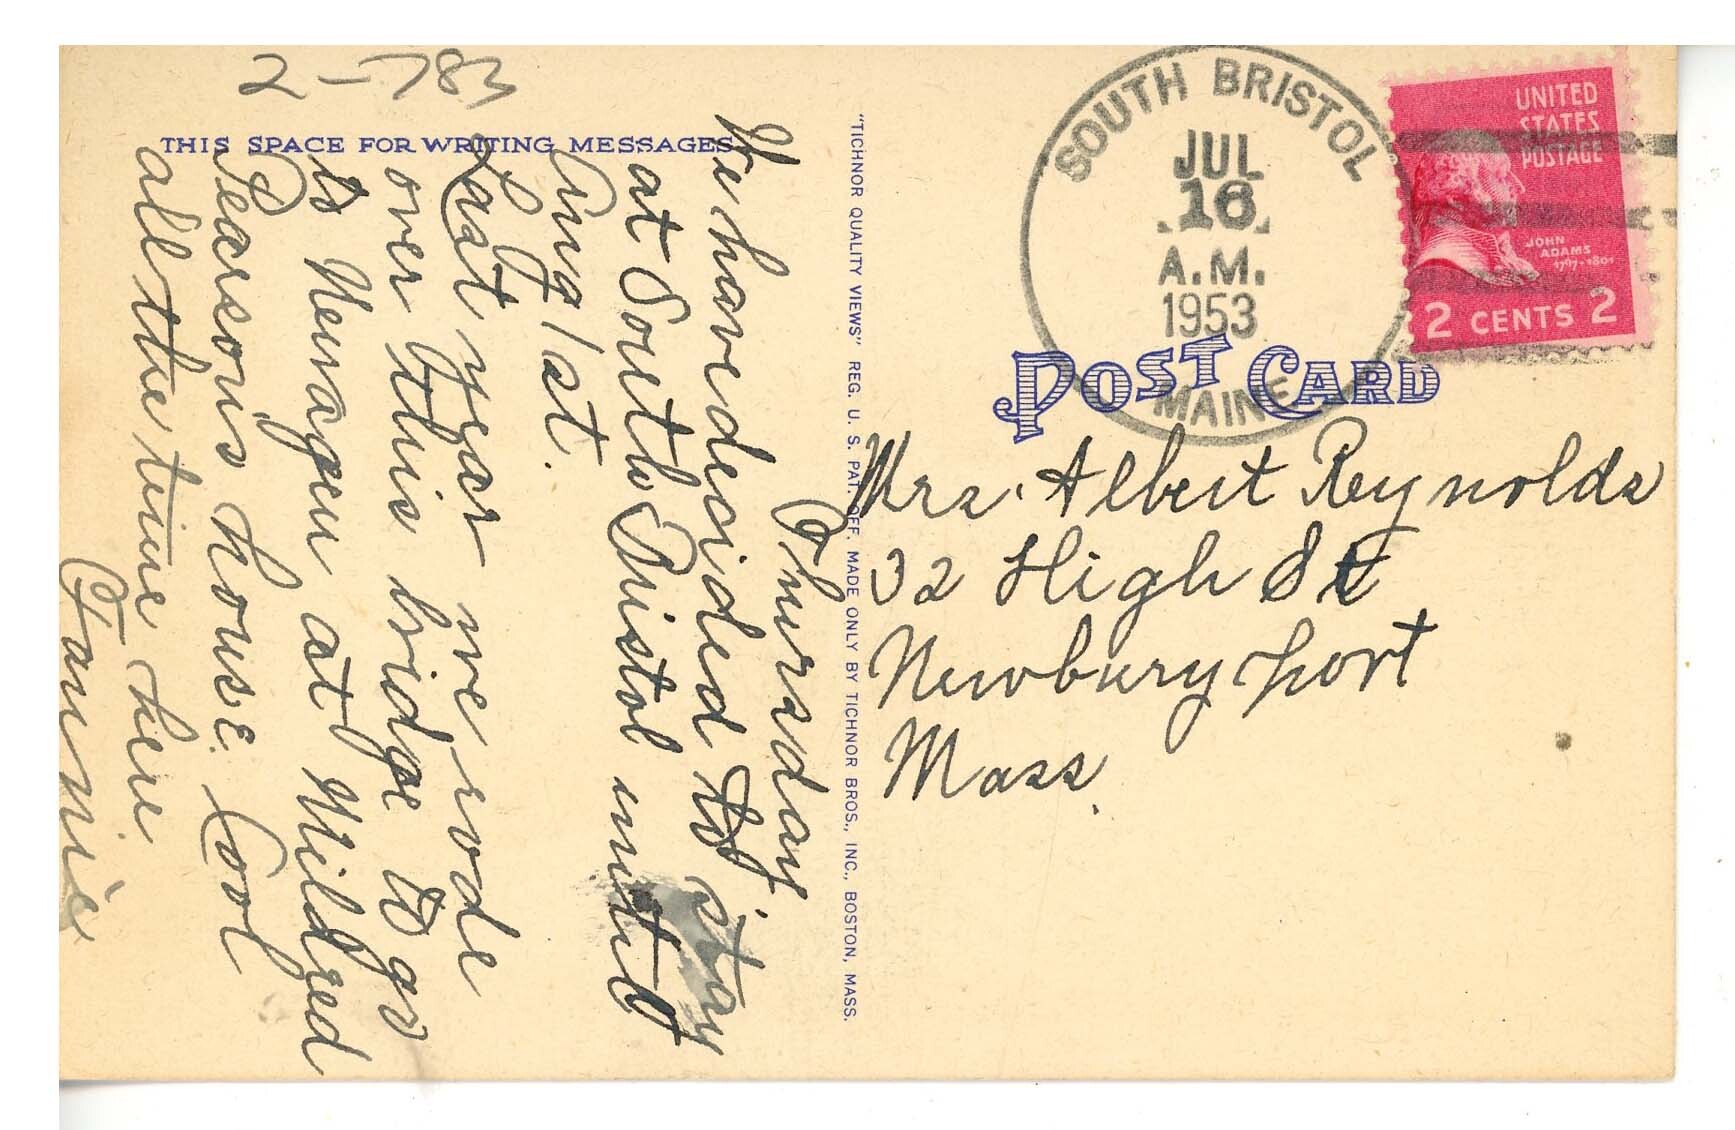 THIS SPACE FOR WRITING MESSAGES
Thursday.
We have decided to stay
at South Bristol until
Aug 1st.
Last year we rode
over this bridge to go
to Newagen at Mildred
Pearson's house. Cool
all the time here
Fannie
"TICHNOR QUALITY VIEWS" REG. U. S. PAT. OFF. MADE ONLY BY TICHNOR BROS., INC., BOSTON, MASS.
SOUTH BRISTOL
JUL
16
A.M.
1953
MAINE
UNITED
STATES
POSTAGE
JOHN
ADAMS
1797-1801
2 CENTS 2
POST CARD
Mrs. Albert Reynolds
32 High St
Newburyport
Mass.